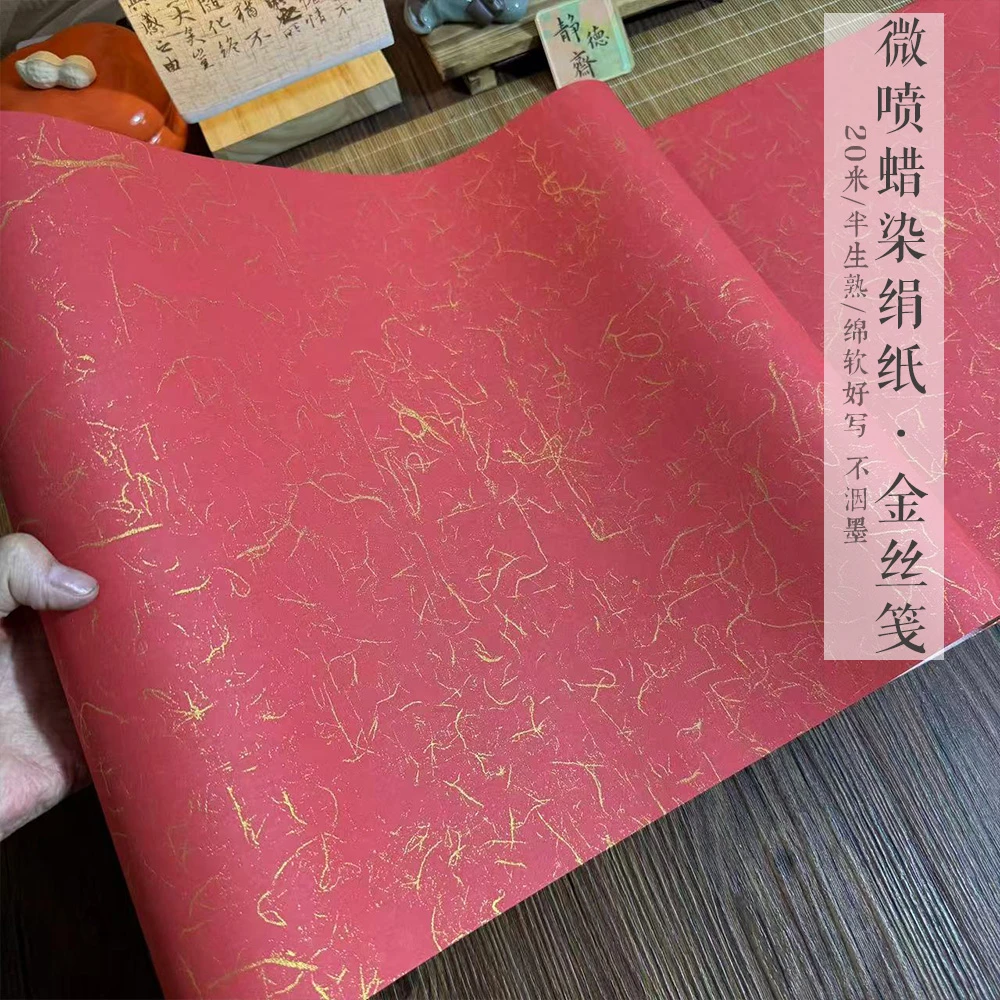 微喷蜡染绢纸·金丝笺
20米/半生熟/绵软好写 不洇墨
静德
齋